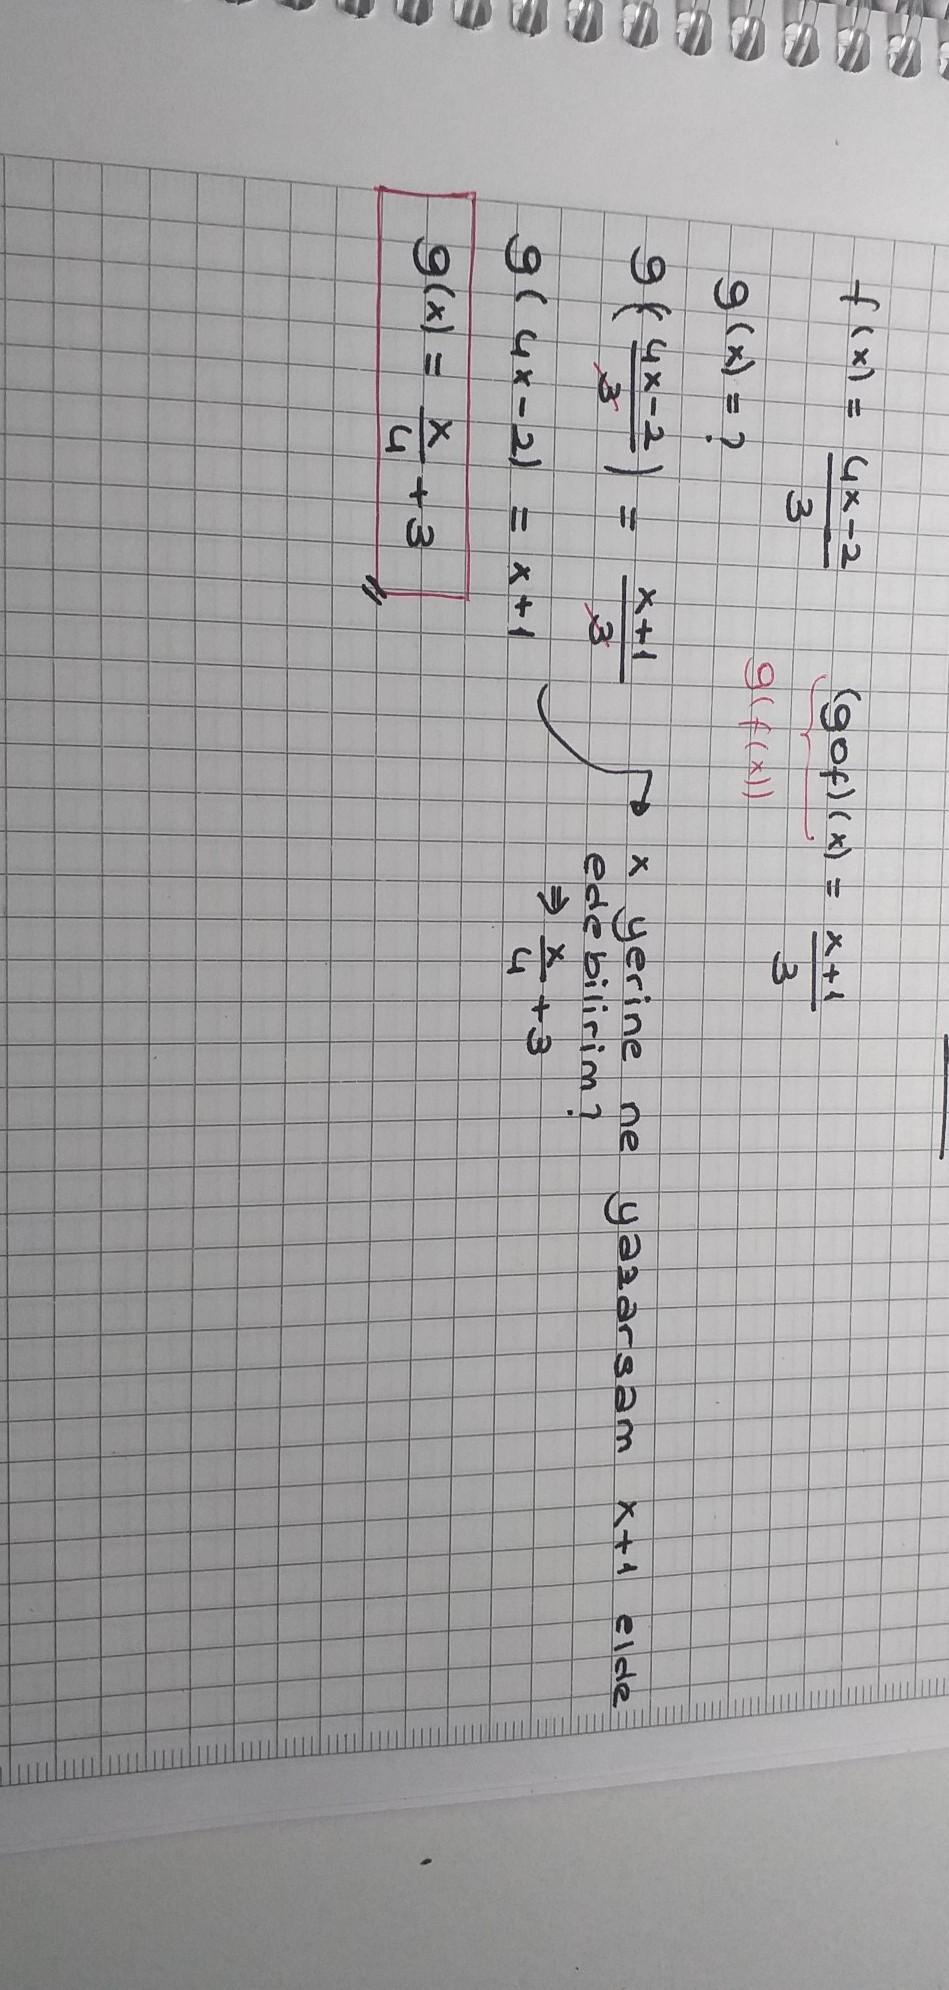 f(x) = (4x-2)/3 (gof)(x) = (x+1)/3
g(x) = ? g(f(x))
g((4x-2)/3) = (x+1)/3
x yerine ne yazarsam x+1 elde
edebilirim?
⇒ x/4 + 3
g(4x-2) = x+1
g(x) = x/4 + 3